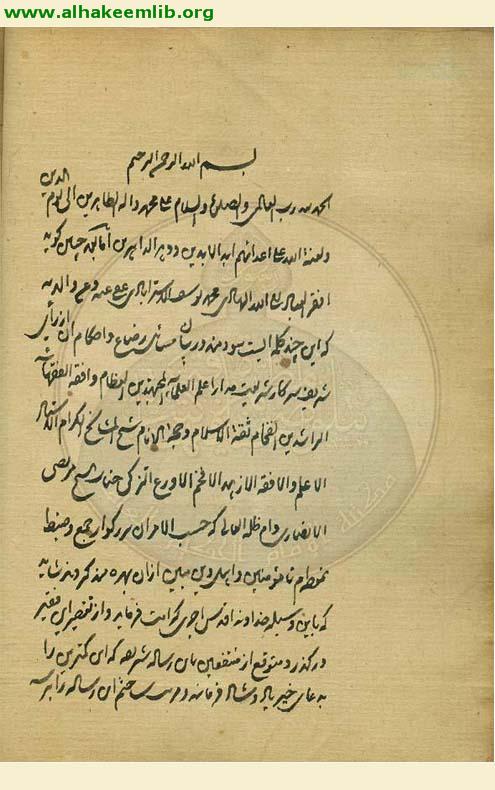 www.alhakeemlib.org
بسم الله الرحمن الرحیم
الحمد لله رب العالمین والصلوة والسلام علی محمد واله الطاهرین الی یوم الدین
ولعنة الله علی اعدائهم ابد الابدین ودهر الداهرین اما بعد چنین گوید
افقر العباد الی الله الهادی محمد یوسف الاسترابادی عفی عنه وعن والدیه
که این چند کلمه ایست سودمند در بیان مسائل رضاع واحکام ان از رأی
شریف سرکار شریعت مدار اعلم العلماء المجتهدین العظام وافقه الفقهاء
الراشدین الفخام ثقة الاسلام وحجة الانام شیخ المشایخ الکرام الاستاد
الاعلم والافقه الازهد الافخم الاورع الزکی جناب شیخ مرتضی
الانصاری دام ظله العالی که حسب الامر ان بزرگوار جمع وضبط
نمودم تا مؤمنین واهل دین مبین از ان بهره مند گردند شاید
که باین وسیله خداوند اقدس اجری کرامت فرماید و از تقصیر این فقیر
درگذرد ومتوقع از منتفعین باین رساله شریفه که این کمترین را
به دعای خیر یاد وشاد فرمایند ومرتب ساختم این رساله را بر سه